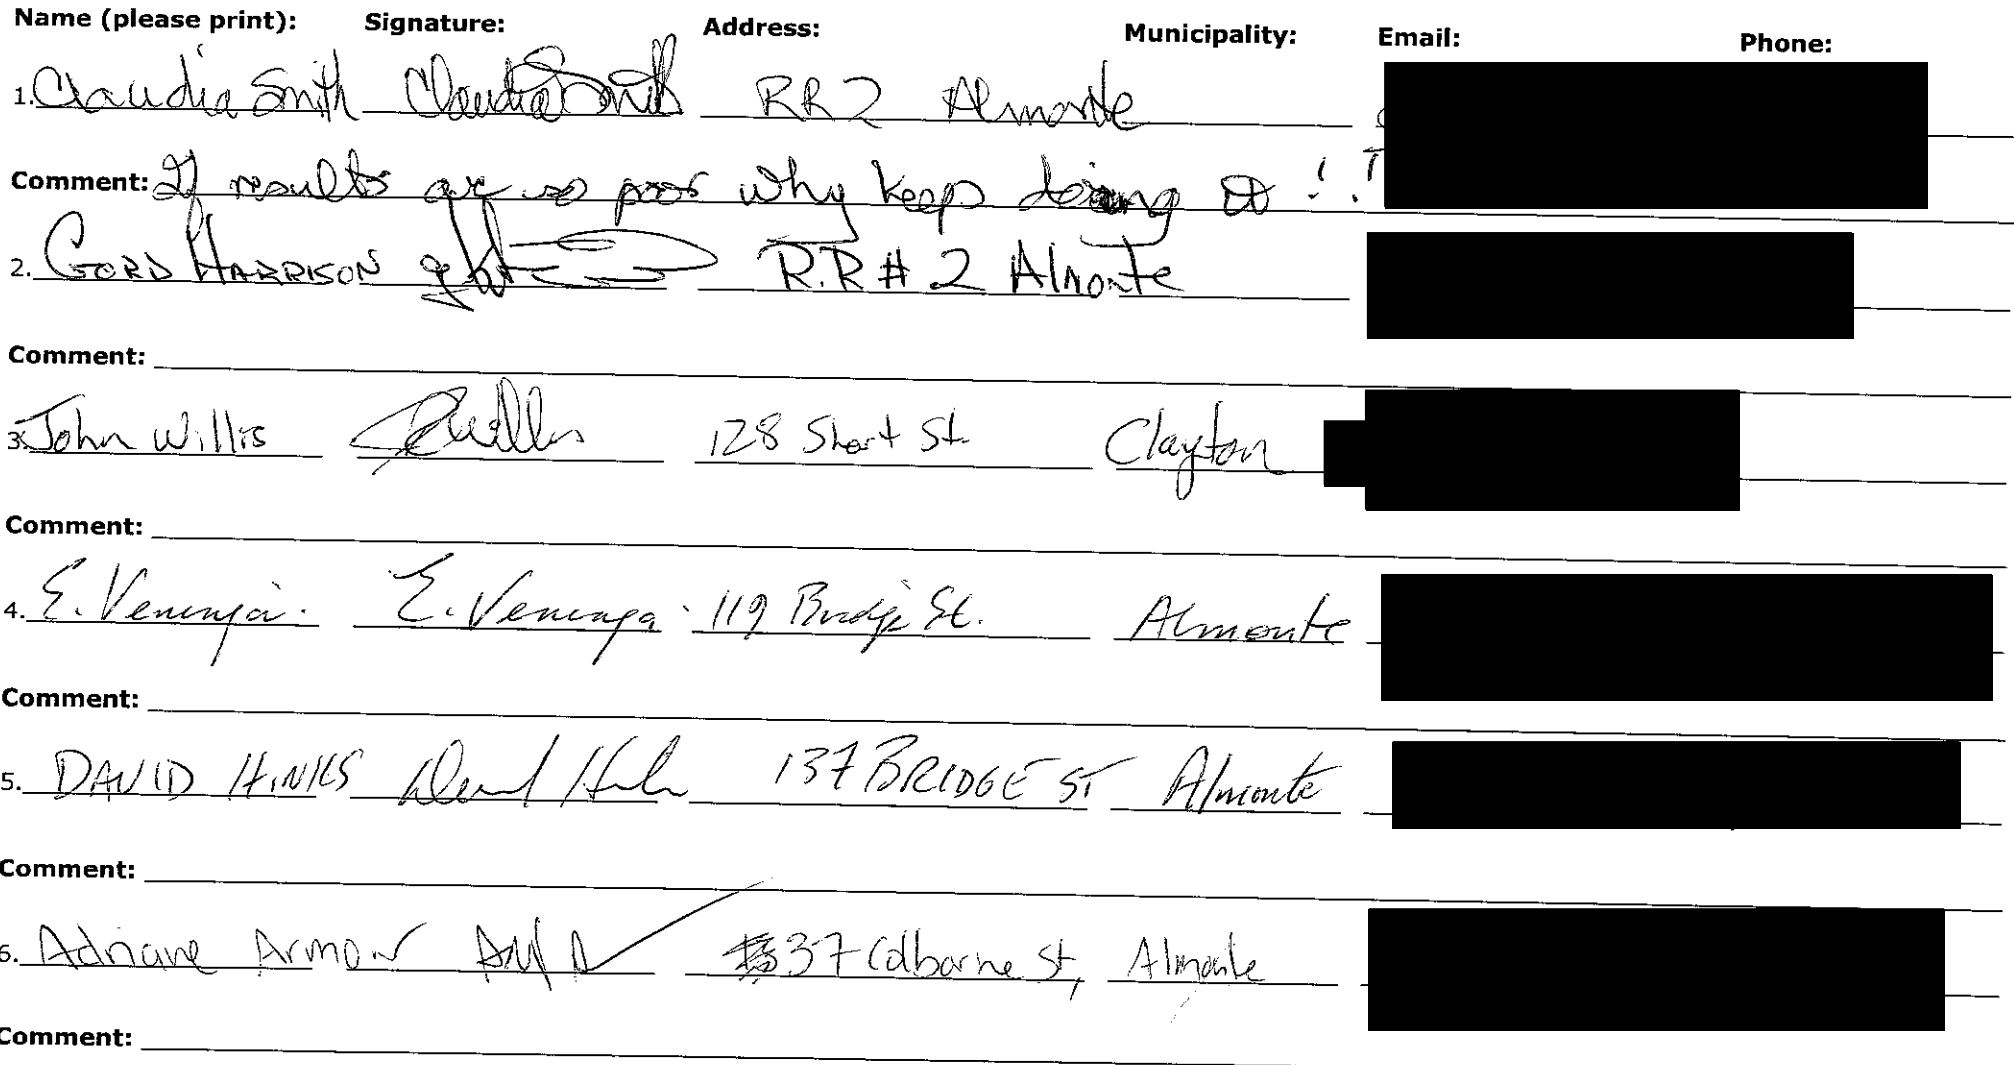 Name (please print): Signature: Address: Municipality: Email: Phone:
1. Claudia Smith Claudia Smith RR2 Almonte
Comment: If results are so poor why keep doing it !!
2. GORD HARRISON R.R # 2 Almonte
Comment:
3. John Willis JWillis 128 Short St. Clayton
Comment:
4. E. Veninga. E. Veninga. 119 Bridge St. Almonte
Comment:
5. DAVID HINKS David Hinks 137 BRIDGE ST Almonte
Comment:
6. Adriane Armour 37 Colborne St, Almonte
Comment: